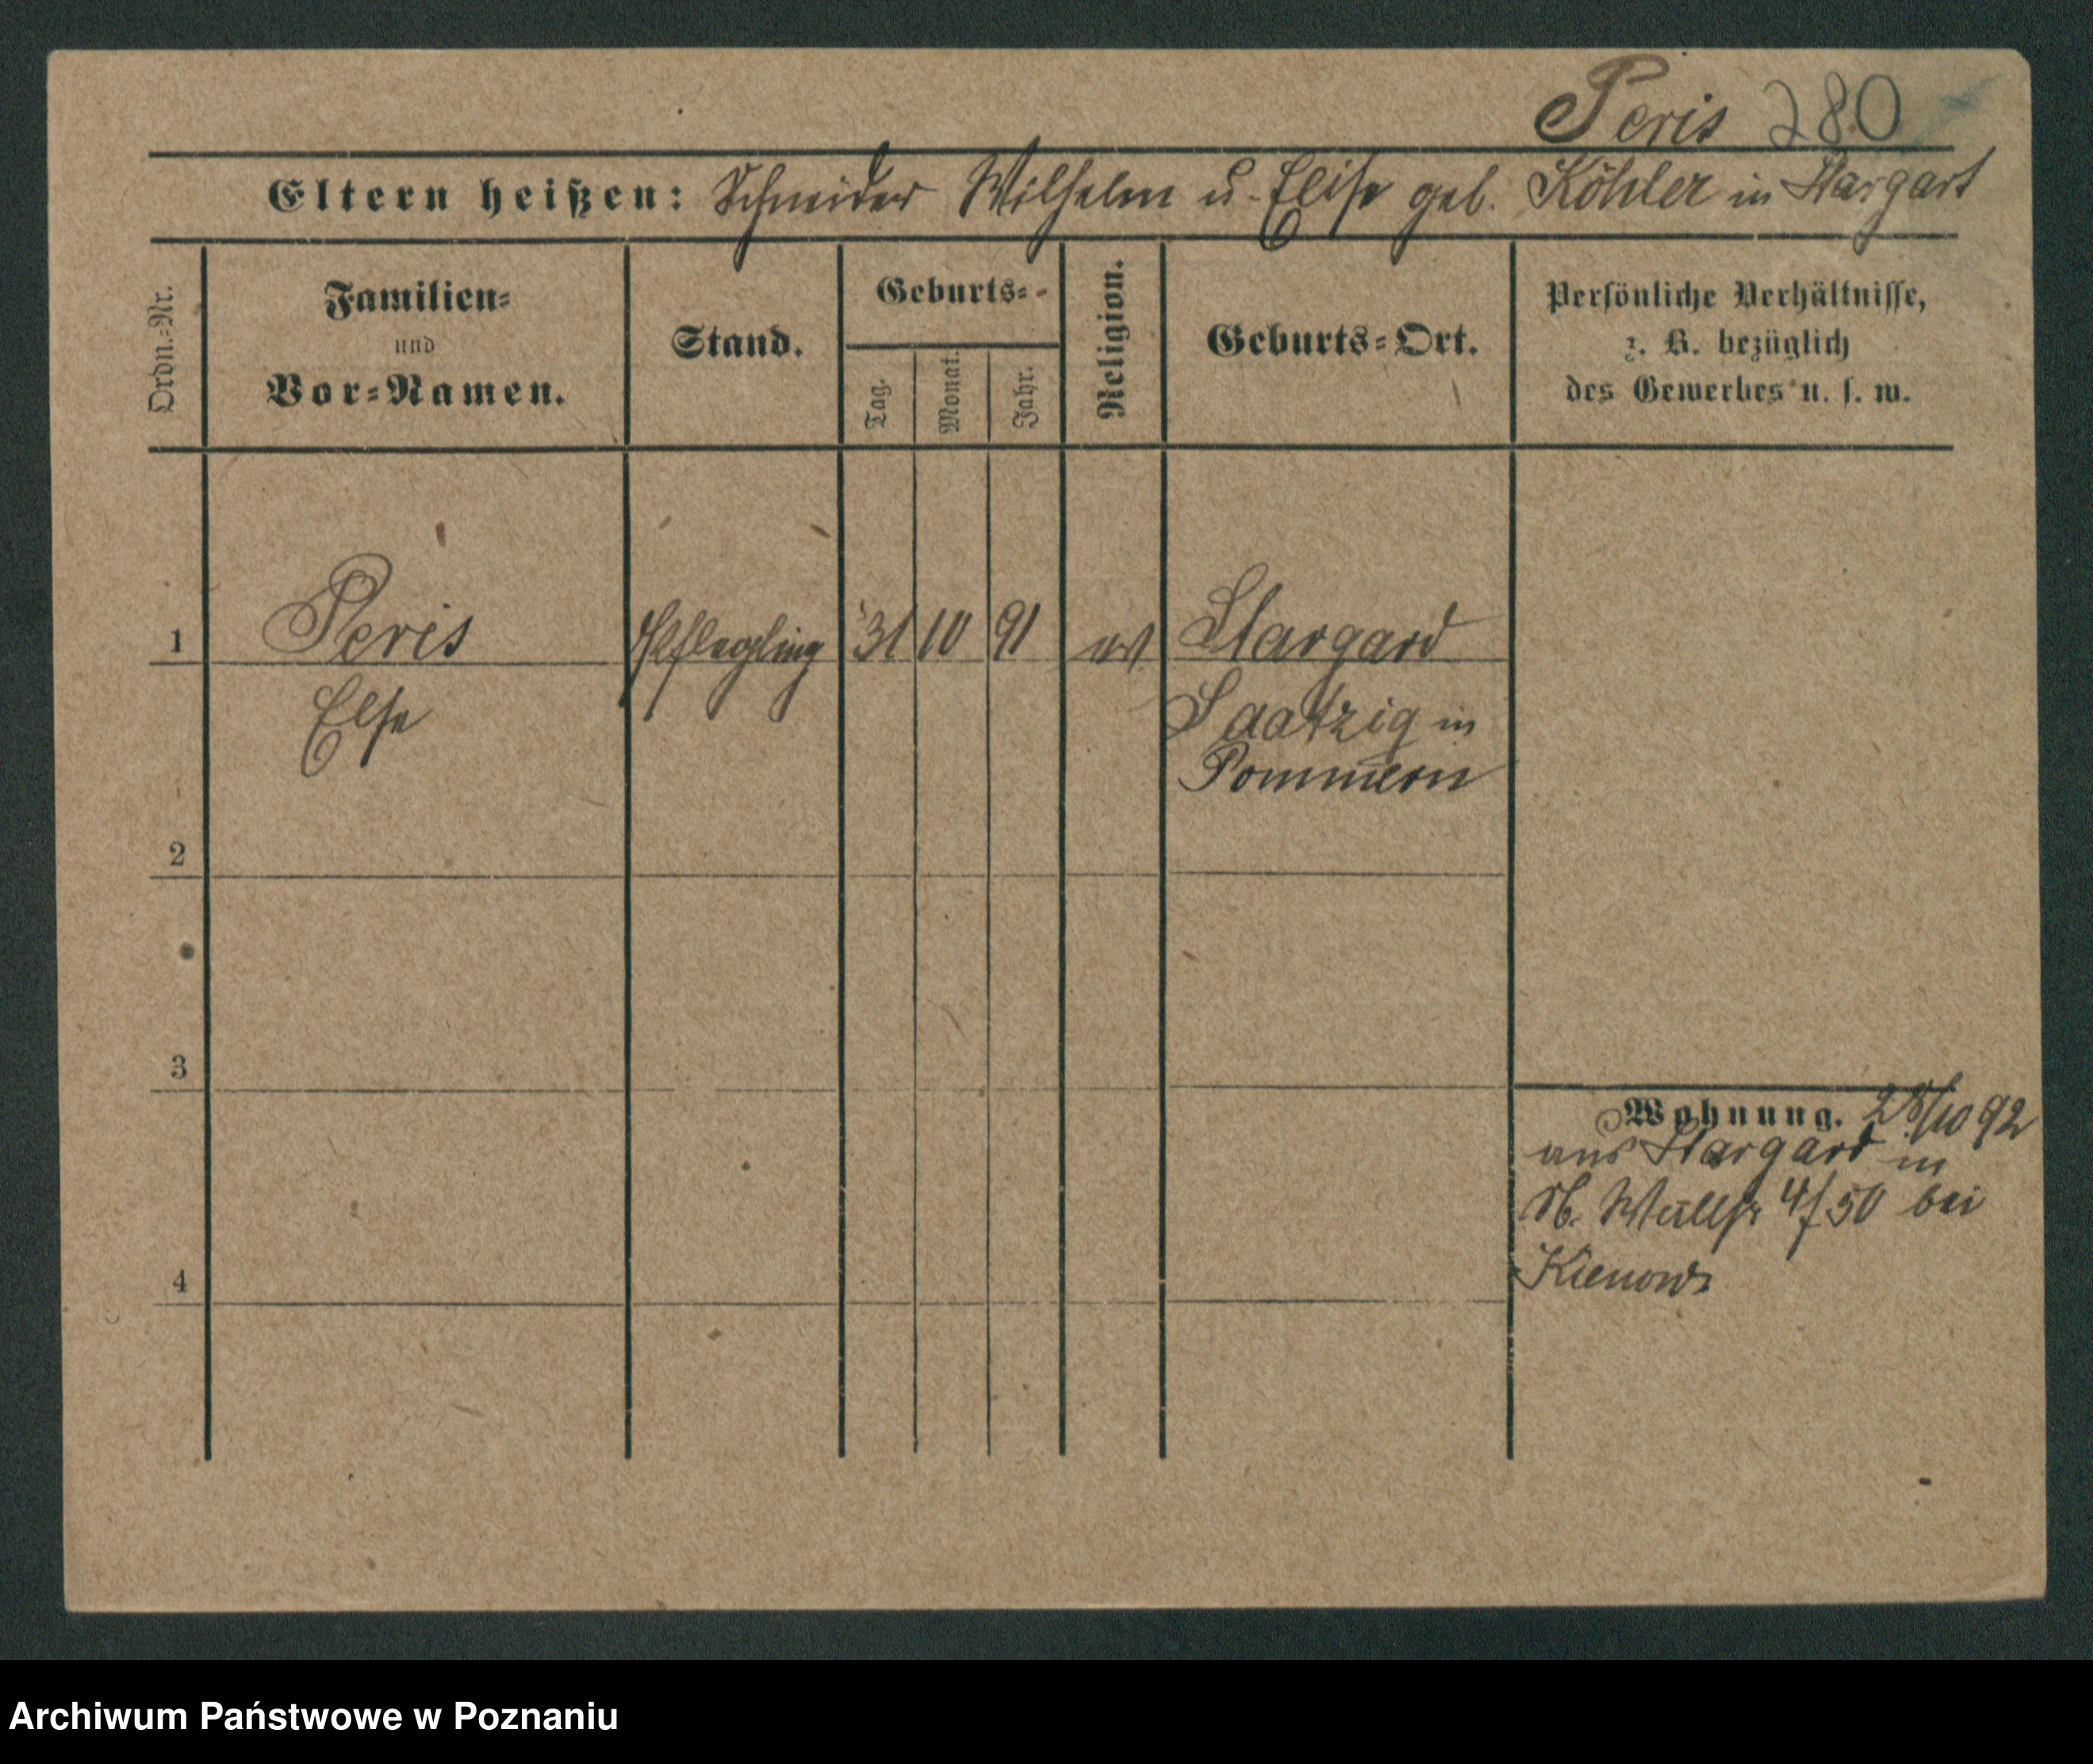 Peris 280
Eltern heißen: Schneider Wilhelm u. Elise geb. Köhler in Stargart
Ordn.=Nr.
Familien=
und
Vor=Namen.
Stand.
Geburts=
Tag.
Monat.
Jahr.
Religion.
Geburts=Ort.
Persönliche Verhältnisse,
z. B. bezüglich
des Gewerbes u. s. w.
1 Peris Pflegling 31 10 91 ev Stargard
Else Saatzig in
Pommern
2
3
Wohnung. 28/10 92
aus Stargard in
4/50 bei
4
Archiwum Państwowe w Poznaniu